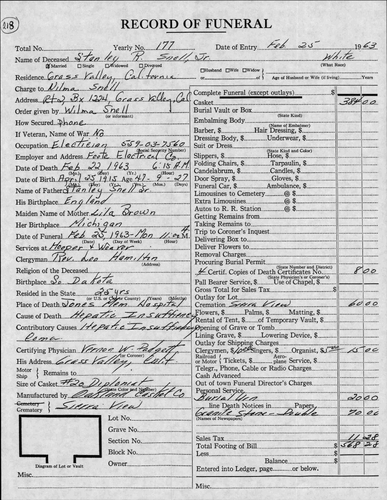 218
RECORD OF FUNERAL
Total No. Yearly No. 177 Date of Entry Feb 25 1963
Name of Deceased Stanley R. Snell, Jr. White
Married Single Widowed Divorced Husband Wife Widow of (What Race)
Residence Grass Valley, California Age of Husband or Wife (if living) Years
Charge to Wilma Snell
Address Rt 2 Bx 1224, Grass Valley, Cal
Order given by Wilma Snell
(or informant)
How Secured Phone
If Veteran, Name of War No
Occupation Electrician 559-03-7560
(Social Security Number)
Employer and Address Forte Electrical Co.
Date of Death Feb 22, 1963 6:15 A.M
Date of Birth Apr 25, 1915 Age 47-9-27
Name of Father Stanley Snell Sr
His Birthplace England
Maiden Name of Mother Lila Brown
Her Birthplace Michigan
Date of Funeral Feb 25, 1963-Mon 11:00 A M
Services at Hooper & Weaver
Clergyman Rev. Leo Hamilton
Religion of the Deceased
Birthplace So. Dakota
Resided in the State 25 yrs
Place of Death Jones Mem. Hospital
Cause of Death Hepatic Insufficiency
Contributory Causes Hepatic Insufficiency
Coma
Certifying Physician
His Address Grass Valley, Calif.
Motor
Ship Remains to
Size of Casket #20 Diplomat
Manufactured by Oakland Casket Co
Cemetery
Crematory Sierra View
Lot No.
Grave No.
Section No.
Block No.
Owner
Diagram of Lot or Vault
Misc.
Complete Funeral (except outlays) $
Casket 384 00
Burial Vault or Box
(State Kind)
Embalming Body
(Name of Embalmer)
Barber, $ Hair Dressing, $
Dressing Body, $ Underwear, $
Suit or Dress
(State Kind and Color)
Slippers, $ Hose, $
Folding Chairs, $ Tarpaulin, $
Candelabrum, $ Candles, $
Door Spray, $ Gloves, $
Funeral Car, $ Ambulance, $
Limousines to Cemetery @ $
Extra Limousines @ $
Autos to R. R. Station @ $
Getting Remains from
Taking Remains to
Trip to Coroner's Inquest
Delivering Box to
Deliver Flowers to
Removal Charges
Procuring Burial Permit
(State Number and District)
4 Certif. Copies of Death Certificates No. 8 00
Pall Bearer Service, $ Use of Chapel, $
Gross Total for Sales Tax
Outlay for Lot
Cremation Sierra View 60 00
Flowers, $ Palms, $ Matting, $
Rental of Tent, $ of Temporary Vault, $
Opening of Grave or Tomb
Lining Grave, $ Lowering Device, $
Outlay for Shipping Charges
Clergyman, $ Singers, $ Organist, $ 15 00
Railroad
or Motor Tickets, $ Aeroplane Service, $
Telegr., Phone, Cable or Radio Charges
Cash Advanced
Out of town Funeral Director's Charges
Personal Service
Burial Urn 20 00
line Death Notices in Papers
(Names of Newspapers)
Granite Stone - Double 70 00
Sales Tax 11 28
Total Footing of Bill $ 568 28
Less
Balance
Entered into Ledger, page or below.
Misc.